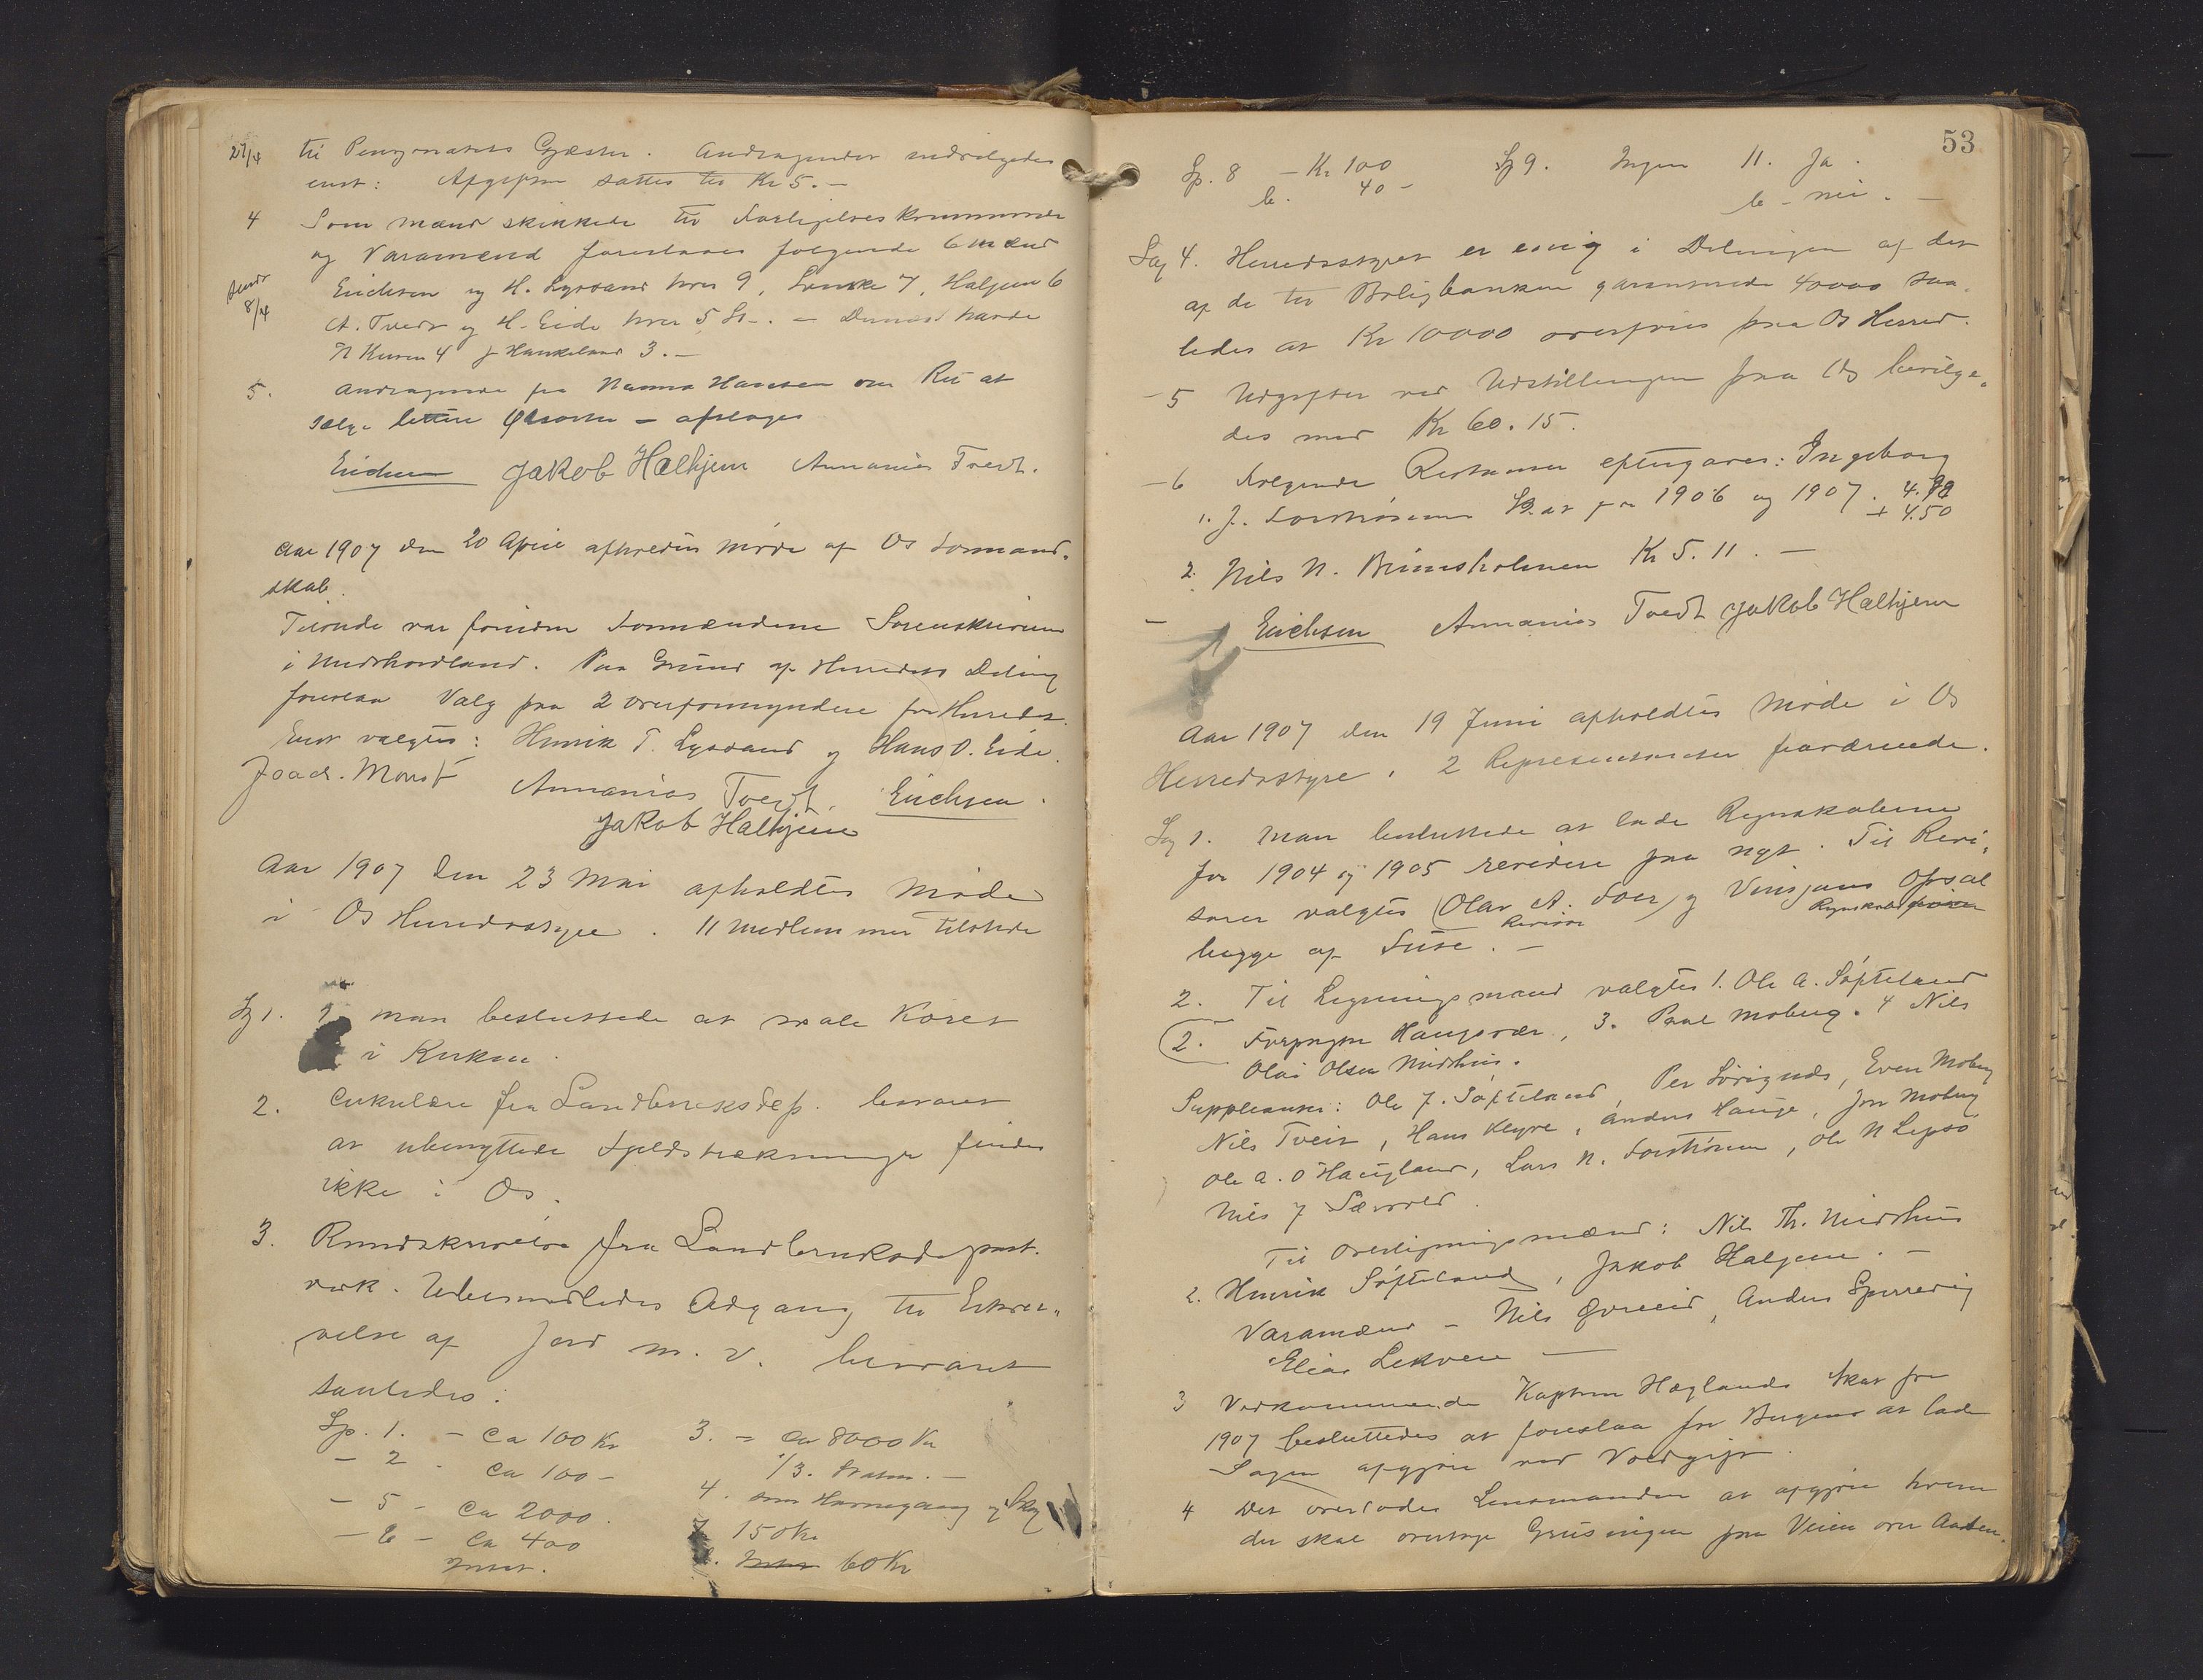 27/4 til Pensjonatets Gjæster. Andragendet indvilgedes
enst: Afgiften sattes til Kr 5.-
4 Som mænd skikkede til Forligelseskommissionen
og Varamænd foreslaaes følgende 6 mænd
sendt 8/4 Erichsen og H. Lyssand hver 9, 7, Haljem 6
A. Tvedt og H. Eide hver 5 St-. - Dernæst havde
N Kuven 4 J Haukeland 3.-
5. Andragende fra Nanna Hansen om Ret at
sælge lettere Ølsorter - afslaaes
Erichsen Jakob Halhjem Annanias Tvedt.
Aar 1907 den 20 April afholdtes Møde af Os Formand-
skab.
Tilstede var foruden Formændene Sorenskriveren
i Midthordland. Paa Grund af Herredets Deling
foretaa Valg paa 2 overformyndere for Herredet.
Enst valgtes: Henrik T. Lyssand og Hans O. Eide.
Joach. Monst Annanias Tvedt. Erichsen.
Jakob Halhjem
Aar 1907 den 23 Mai afholdtes Møde
i Os Herredsstyre. 11 medlemmer tilstede
Sag 1. man besluttede at male Koret
i Kirken.
2. Cirkulære fra Landbruksdep. besvares
at ubenyttede Fjeldstrækninger findes
ikke i Os.
3. Rundskrivelse fra Landbruksdepart.
vedk. Udenbygdsboendes Adgang til Erhver-
velse af Jord m. v. besvaret
saaledes:
Sp. 1. - Ca 100 Kr 3. - ca 8000 Kr
- 2 - Ca 100 - 1/3.
- 5 - Ca 2000. 4. som Havnegang og Skog
- 6 - Ca 400 7. 150 Kr
Intet. 60 Kr
53
Sp. 8 - Kr 100 Sp 9. Ingen 11. Ja.
b. 40 - b - nei. -
Sag 4. Herredsstyret er enig i Delingen af det
af de til Boligbanken garanterede 40000 saa-
ledes at Kr 10000 overføres paa Os Herred.
- 5 Udgifter ved Udstillingen paa Os bevilge-
des med Kr 60.15.
- 6 Følgende Restancer eftergaves: Ingeborg
1. J. Forstrønen Skat for 1906 og 1907. 4.
+ 4.50
2. Nils N. Brunsholmen Kr 5.11. -
- Erichsen Annanias Tvedt Jakob Halhjem
Aar 1907 den 19 Juni afholdtes Møde i Os
Herredsstyre. 2 Repræsentanter fraværende.
Sag 1. Man besluttede at lade Regnskaberne
for 1904 og 1905 revidere paa nyt. Til Revi-
sorer valgtes Olav A. og Vinsjans Opsal
Revisor Regnskabsfører
begge af Fuse. -
2. Til Ligningsmænd valgtes 1. Ole A. Søfteland
2. Haugsvær, 3. Paal Moberg. 4 Nils
Olai Olsen Midthus.
Suppleanter: Ole J. Søfteland, Per Lørignæs, Even Moberg
Nils Tveit, Hans Klyve, Anders Hauge, Jon Moberg
Ole A. O Haugland, Lars N. Forstrønen, Ole N Lepsø
Nils J Særvold.
Til Overligningsmænd: Nils Th. Midthus
2. Henrik Søfteland, Jakob Haljem. -
Varamænd - Nils Øvreeid, Anders Spurreving
Elias Lekven -
3 Vedkommende Kaptein Hæglands Skat for
1907 besluttedes at foreslaa for Bergens at lade
Sagen afgjøre ved Voldgift.
4 Det overlodes Lensmanden at afgjøre hvem
der skal overtage Grusningen paa Veien over Aasen.